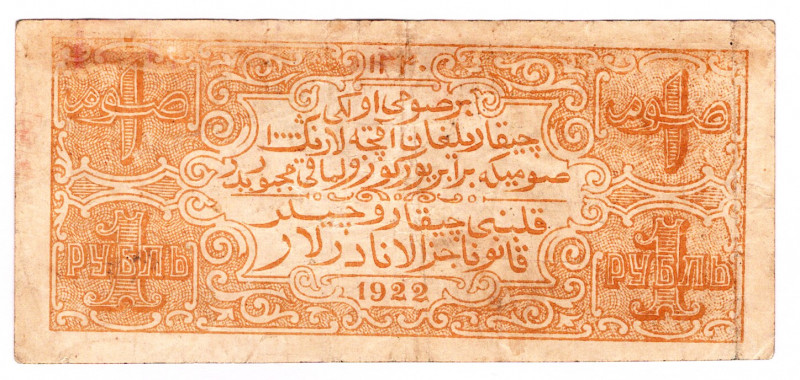 ۱۳۴۰
صوم ۱
۱ صوم
بر صومی اولکی
چیقاریلغان اقچه لارنک ۱۰۰۰۰
صومیکه برابر یورکوزولماقی مجبوریدر
قلبنی چیقاروچیلر
قانونا جزالانادرلار
1 РУБЛЬ
1 РУБЛЬ
1922